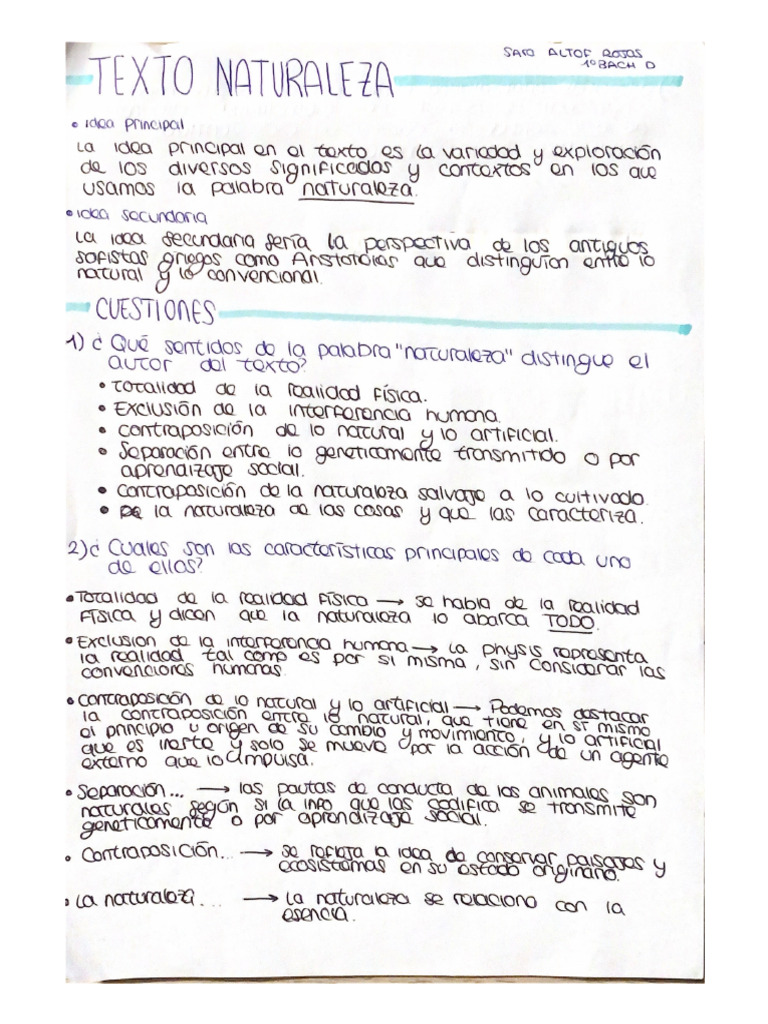 SARA ALTOF ROJAS
1º BACH D
TEXTO NATURALEZA
• idea principal
La idea principal en el texto es la variedad y exploración
de los diversos significados y contextos en los que
usamos la palabra naturaleza.
• idea secundaria
La idea secundaria sería la perspectiva de los antiguos
sofistas griegos como que distinguían entre lo
natural y lo convencional.
CUESTIONES
1) ¿Qué sentidos de la palabra "naturaleza" distingue el
autor del texto?
• Totalidad de la realidad física.
• Exclusión de la interferencia humana.
• Contraposición de lo natural y lo artificial.
• Separación entre lo geneticamente transmitido o por
aprendizaje social.
• Contraposición de la naturaleza salvaje a lo cultivado.
• la naturaleza de las cosas y que las caracteriza.
2) ¿Cuales son las características principales de cada uno
de ellos?
• Totalidad de la realidad física → se habla de la realidad
física y dicen que la naturaleza lo abarca TODO.
• Exclusion de la interferencia humana → La physis representa
la realidad tal como es por si misma, sin considerar las
convenciones humanas.
• Contraposición de lo natural y lo artificial → Podemos destacar
la contraposición entre lo natural, que tiene en sí mismo
el principio u origen de su cambio y movimiento, y lo artificial
que es inerte y solo se mueve por la acción de un agente
externo que lo impulsa.
• Separación... → las pautas de conducta de los animales son
naturales según si la info que las codifica se transmite
geneticamente o por aprendizaje social.
• Contraposición... → se refleja la idea de conservar paisajes y
ecosistemas en su estado originario.
• La naturaleza... → La naturaleza se relaciona con la
esencia.